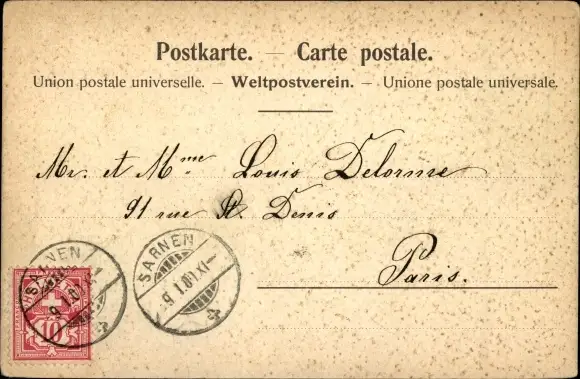 Postkarte. — Carte postale.
Union postale universelle. — Weltpostverein. — Unione postale universale.
Mr. et Mme Louis Delorme
91 rue St. Denis
Paris.
SARNEN
SARNEN
10